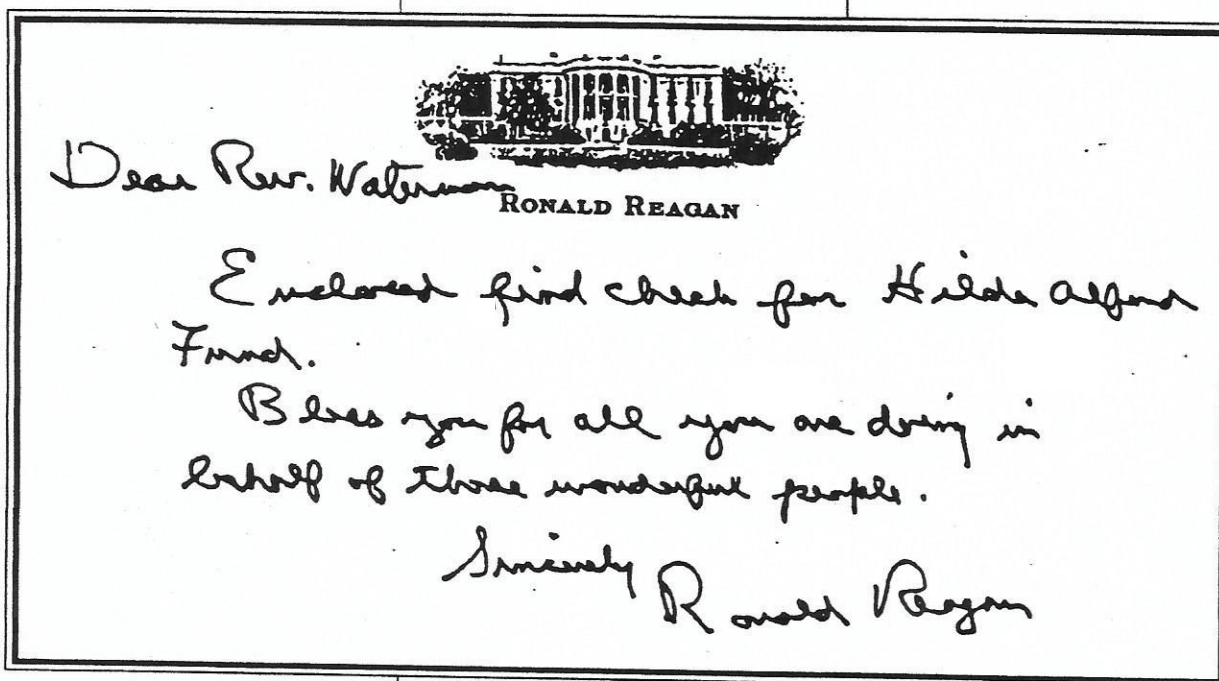 Dear Rev. Waterman
RONALD REAGAN
Enclosed find check for Hilda Alford
Fund.
Bless you for all you are doing in
behalf of those wonderful people.
Sincerely
Ronald Reagan